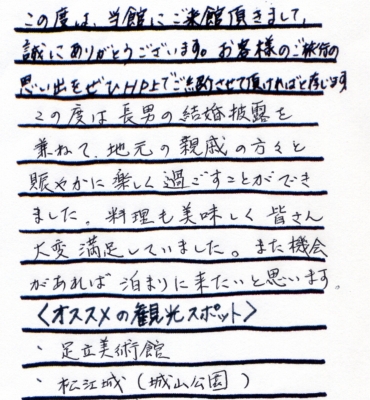 この度は、当館にご来館頂きまして、
誠にありがとうございます。お客様のご旅行の
思い出をぜひHP上でご紹介させて頂ければと存じます
この度は長男の結婚披露を
兼ねて、地元の親戚の方々と
賑やかに楽しく過ごすことができ
ました。料理も美味しく皆さん
大変満足していました。また機会
があれば泊まりに来たいと思います。
〈オススメの観光スポット〉
・足立美術館
・松江城(城山公園)